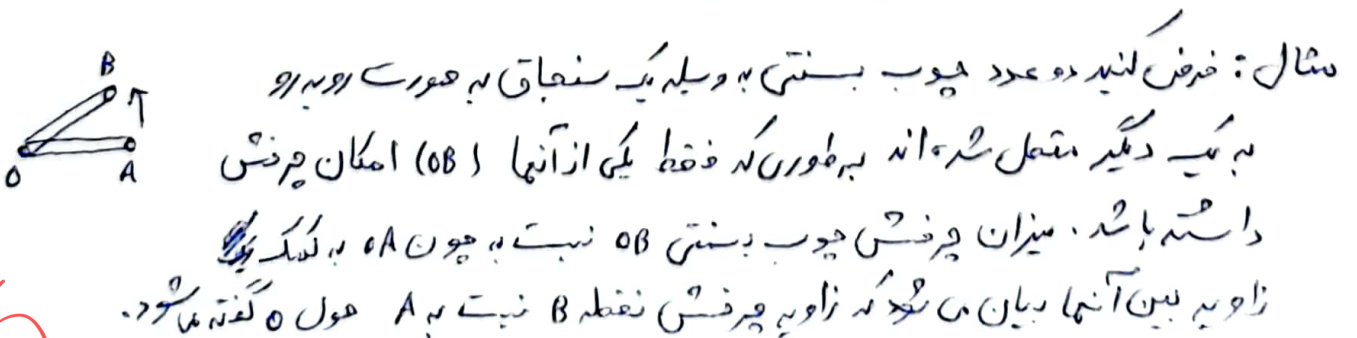 مثال : فرض کنید دو عدد چوب بستنی به وسیله یک سنجاق به صورت روبه رو
به یک دیگر متصل شده اند به طوری که فقط یکی از آنها (OB) امکان چرخش
داشته باشد. میزان چرخش چوب بستنی OB نسبت به چون OA به کمک
زاویه بین آنها بیان می شود که زاویه چرخش نقطه B نسبت به A حول O گفته می شود.
B
O
A